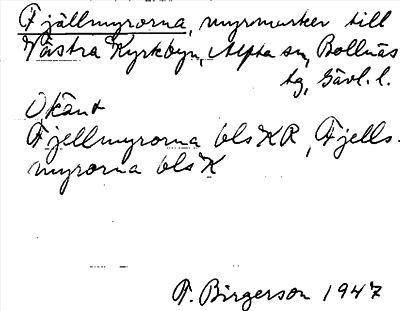 Fjällmyrorna, myrmarker till
Västra Kyrkbyn, Alfta sn, Bollnäs
tg, Gävl. l.
Okänt
Fjellmyrorna bls KR, Fjells-
myrorna bls K
F. Birgerson 1947